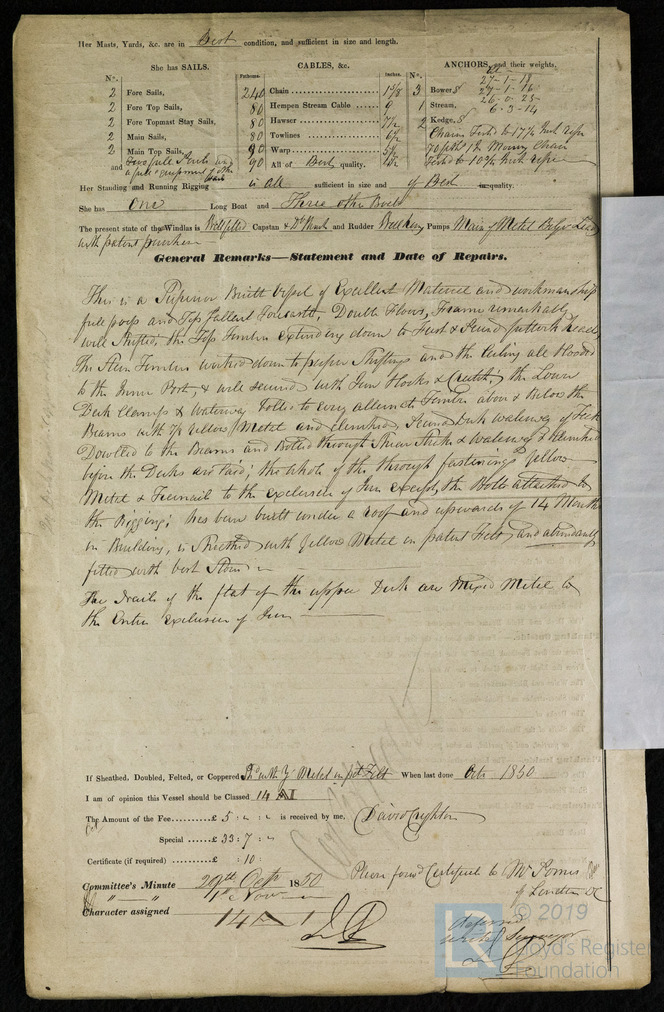 Her Masts, Yards, &c. are in Best condition, and sufficient in size and length.
She has SAILS. CABLES, &c. ANCHORS, and their weights.
Nº. Fathoms. Inches. Nº.
2 Fore Sails, 240 Chain 1 5/8 3 Bowers 27-1-18
2 Fore Top Sails, 80 Hempen Stream Cable 9 1 Stream, 27-1-16
2 Fore Topmast Stay Sails, 80 Hawser 7½ 2 Kedges 26-0-25
2 Main Sails, 80 Towlines 6-3-14
2 Main Top Sails, 90 Warp
and 90 All of Best quality.
Her Standing and Running Rigging is all sufficient in size and of Best quality.
She has One Long Boat and Three other Boats
The present state of the Windlas is Well fitted Capstan and Rudder Pumps Main of Metal
with patent purchase
General Remarks—Statement and Date of Repairs.
This is a Superior Built Vessel of Excellent Material and workmanship
full poop and Top Gallant Forecastle, Double Floors, Frame remarkably
well shifted, the Top Timbers extending down to First & Second futtock heads
The Stern Timbers worked down to proper shiftings and the Ceiling all
to the Inner Post, & well secured with Iron Hooks & Crutches, the Lower
Deck Clamps & Waterway Bolts to every alternate Timber above & Below the
Beams with 7/8 Yellow Metal and clenched, Second Deck waterway of Teak
Dowelled to the Beams and Bolted through Shear Strake & waterway & clenched
before the Decks are laid, the whole of the through fastenings Yellow
Metal & Treenail to the exclusion of Iron except the Bolts attached to
the Rigging; has been built under a roof and upwards of 14 Months
in Building, is Sheathed with Yellow Metal on patent Felt and abundantly
fitted with best Stores
The Nails of the flat of the upper Deck are Mixed Metal to
the Entire exclusion of Iron
If Sheathed, Doubled, Felted, or Coppered Shd with Y Metal on pat Felt When last done Octr 1850
I am of opinion this Vessel should be Classed 14 A I
The Amount of the Fee......£ 5 : " : " is received by me, David Crighton
Special ......£ 33 : 7 : "
Certificate (if required) ......£ : 10 :
Please forward Certificate to Mr
of London
Committee's Minute 29th Octr 1850
1st Novr
Character assigned 14 A 1
deferred
write Surveyor
© 2019
LR Lloyd's Register
Foundation